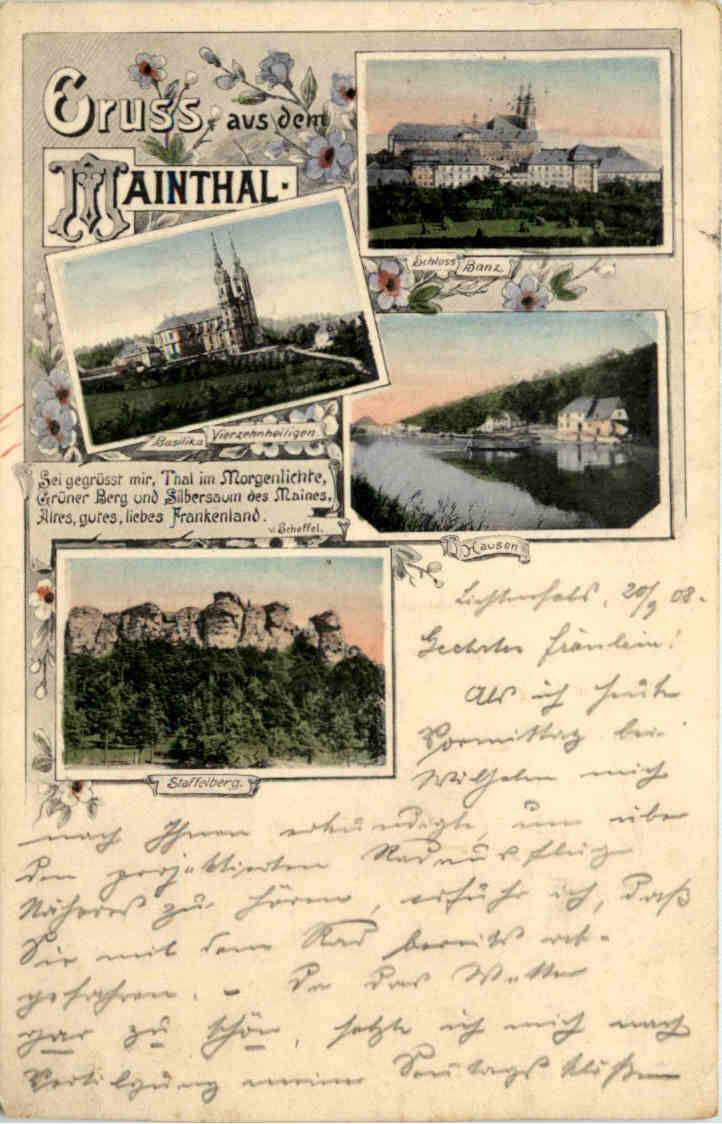 Gruss aus dem
MAINTHAL.
Schloss Banz
Basilika Vierzehnheiligen.
Sei gegrüsst mir, Thal im Morgenlichte,
Grüner Berg und Silbersaum des Maines,
Altes, gutes, liebes Frankenland.
v. Scheffel.
Hausen
Staffelberg.
Lichtenfels, 20/9 08.
Geehrtes Fräulein!
Als ich heute
Vormittag bei
Wilhelm mich
nach Ihnen erkundigte, um über
den projektierten Radausflug
Näheres zu hören, erfuhr ich, daß
Sie mit dem Rad bereits ab-
gefahren. – Da das Wetter
gar zu schön, setzte ich mich nach
Vertilgung meiner Sonntags Klößen